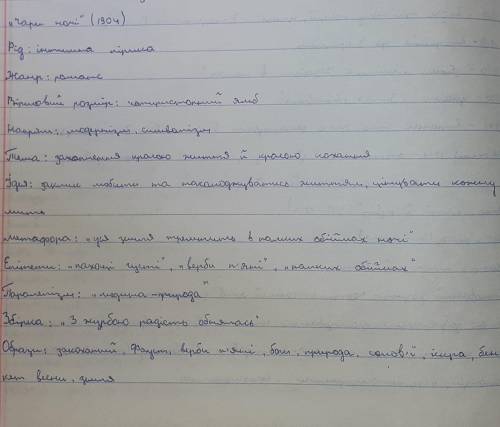 „Чари ночі" (1904)
Рід: інтимна лірика
Жанр: романс
Віршовий розмір: чотиристопний ямб
Напрям: модернізм, символізм
Тема: захоплення красою життя й красою кохання
Ідея: заклик любити та насолоджуватись життям, цінувати кожну
мить
метафора: „уся земля тремтить в палких обіймах ночі"
Епітети: „пахощі густі", „верби п'яні", „палких обіймах"
Паралелізм: „людина-природа"
Збірка: „З журбою радість обнялась"
Образи: закоханий, Фауст, верби п'яні, бог, природа, солов'й, іскра, бен
кет весни, земля